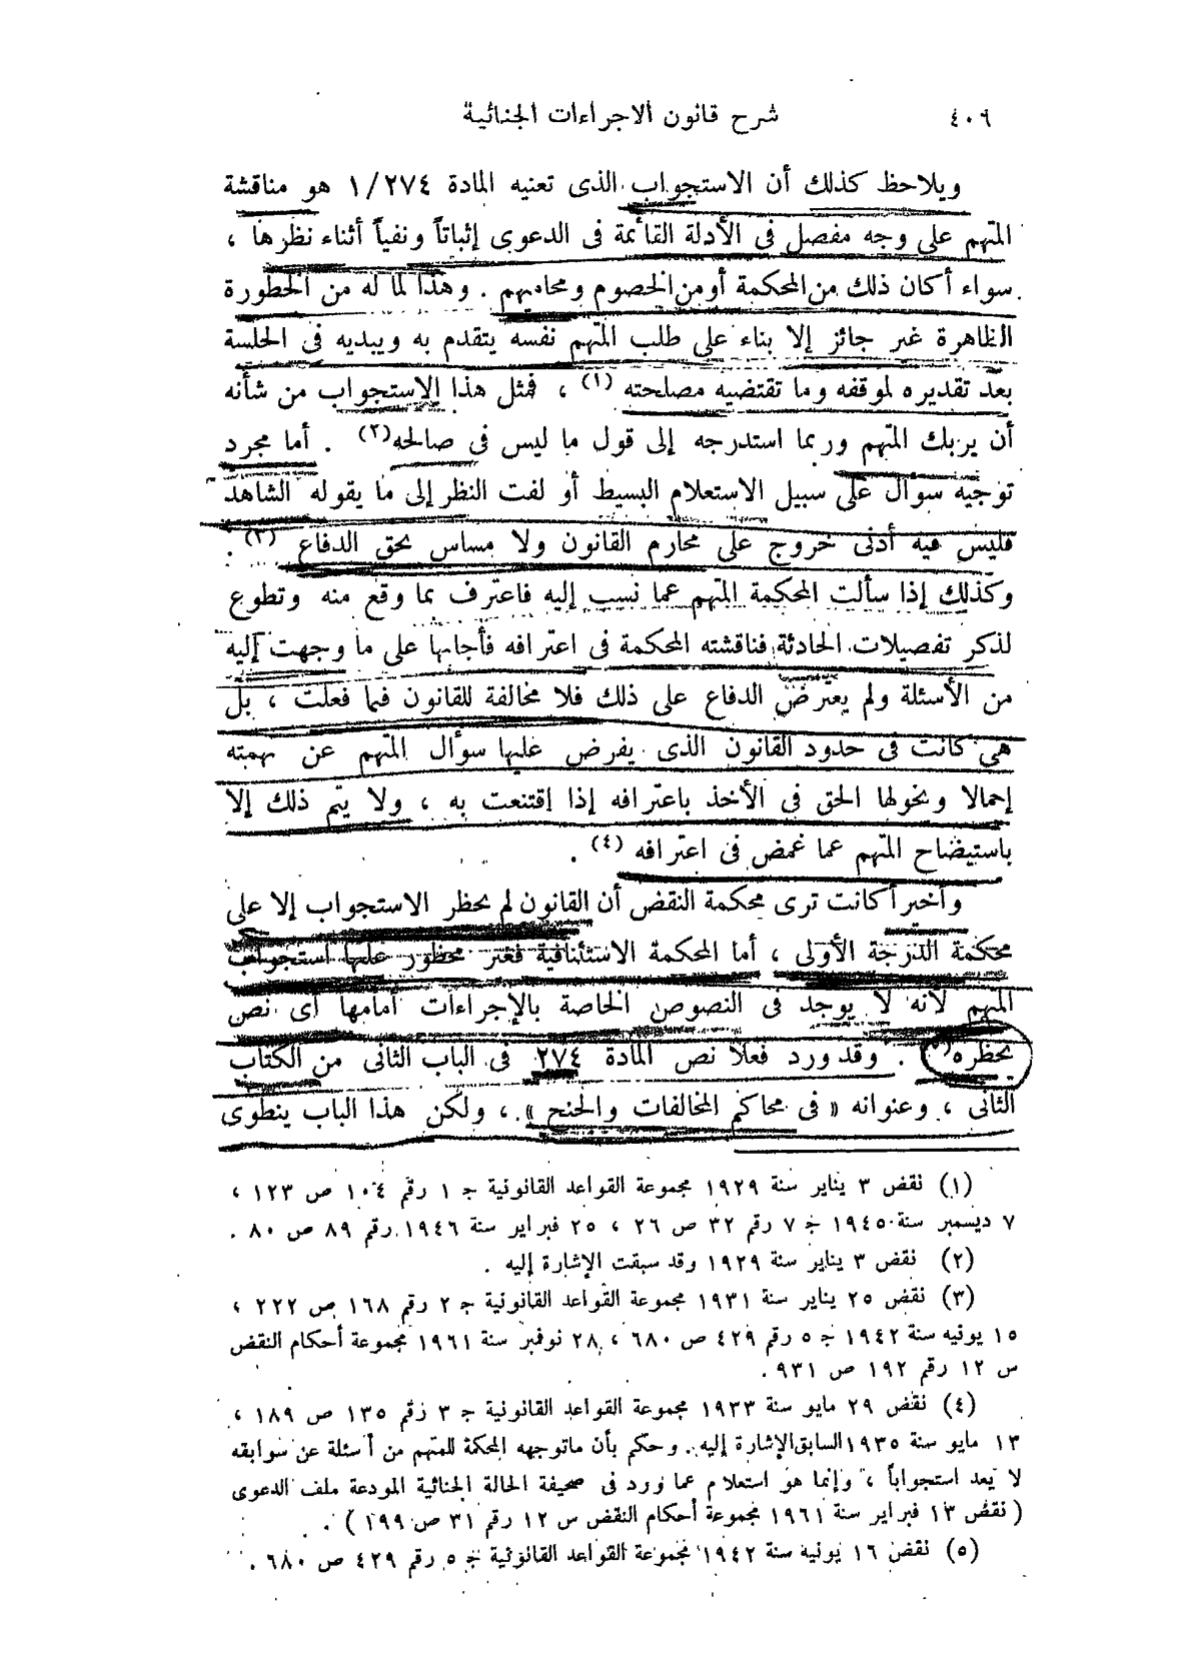 ٤٠٦ شرح قانون الاجراءات الجنائية
ويلاحظ كذلك أن الاستجواب الذى تعنيه المادة ١/٢٧٤ هو مناقشة
المتهم على وجه مفصل فى الأدلة القائمة فى الدعوى إثباتاً ونفياً أثناء نظرها ،
سواء أكان ذلك من المحكمة أو من الخصوم ومحاميهم . وهذا لما له من الخطورة
الظاهرة غير جائز إلا بناء على طلب المتهم نفسه يتقدم به ويبديه فى الجلسة
بعد تقديره لموقفه وما تقتضيه مصلحته (١) ، فمثل هذا الاستجواب من شأنه
أن يربك المتهم وربما استدرجه إلى قول ما ليس فى صالحه(٢) . أما مجرد
توجيه سؤال على سبيل الاستعلام البسيط أو لفت النظر إلى ما يقوله الشاهد
فليس فيه أدنى خروج على محارم القانون ولا مساس بحق الدفاع (٣) .
وكذلك إذا سألت المحكمة المتهم عما نسب إليه فاعترف بما وقع منه وتطوع
لذكر تفصيلات الحادثة فناقشته المحكمة فى اعترافه فأجابها على ما وجهت إليه
من الأسئلة ولم يعترض الدفاع على ذلك فلا مخالفة للقانون فيما فعلت ، بل
هى كانت فى حدود القانون الذى يفرض عليها سؤال المتهم عن تهمته
إجمالا ويخولها الحق فى الأخذ باعترافه إذا اقتنعت به ، ولا يتم ذلك إلا
باستيضاح المتهم عما غمض فى اعترافه (٤) .
وأخيراً كانت ترى محكمة النقض أن القانون لم يحظر الاستجواب إلا على
محكمة الدرجة الأولى ، أما المحكمة الاستئنافية فغير محظور عليها استجواب
المتهم لأنه لا يوجد فى النصوص الخاصة بالإجراءات أمامها أى نص
يحظره(٥) . وقد ورد فعلا نص المادة ٢٧٤ فى الباب الثانى من الكتاب
الثانى ، وعنوانه « فى محاكم المخالفات والجنح » ، ولكن هذا الباب ينطوى
(١) نقض ٣ يناير سنة ١٩٢٩ مجموعة القواعد القانونية ج ١ رقم ١٠٤ ص ١٢٣ ،
٧ ديسمبر سنة ١٩٤٥ ج ٧ رقم ٣٢ ص ٢٦ ، ٢٥ فبراير سنة ١٩٤٦ رقم ٨٩ ص ٨٠ .
(٢) نقض ٣ يناير سنة ١٩٢٩ وقد سبقت الإشارة إليه .
(٣) نقض ٢٥ يناير سنة ١٩٣١ مجموعة القواعد القانونية ج ٢ رقم ١٦٨ ص ٢٢٢ ،
١٥ يونيه سنة ١٩٤٢ ج ٥ رقم ٤٢٩ ص ٦٨٠ ، ٢٨ نوفمبر سنة ١٩٦١ مجموعة أحكام النقض
س ١٢ رقم ١٩٢ ص ٩٣١ .
(٤) نقض ٢٩ مايو سنة ١٩٣٣ مجموعة القواعد القانونية ج ٣ رقم ١٣٥ ص ١٨٩ ،
١٣ مايو سنة ١٩٣٥ السابق الإشارة إليه . وحكم بأن ماتوجهه المحكمة للمتهم من أسئلة عن سوابقه
لا يعد استجواباً ، وإنما هو استعلام عما ورد فى صحيفة الحالة الجنائية المودعة ملف الدعوى
( نقض ١٣ فبراير سنة ١٩٦١ مجموعة أحكام النقض س ١٢ رقم ٣١ ص ١٩٩ ) .
(٥) نقض ١٦ يونيه سنة ١٩٤٢ مجموعة القواعد القانونية ج ٥ رقم ٤٢٩ ص ٦٨٠ .